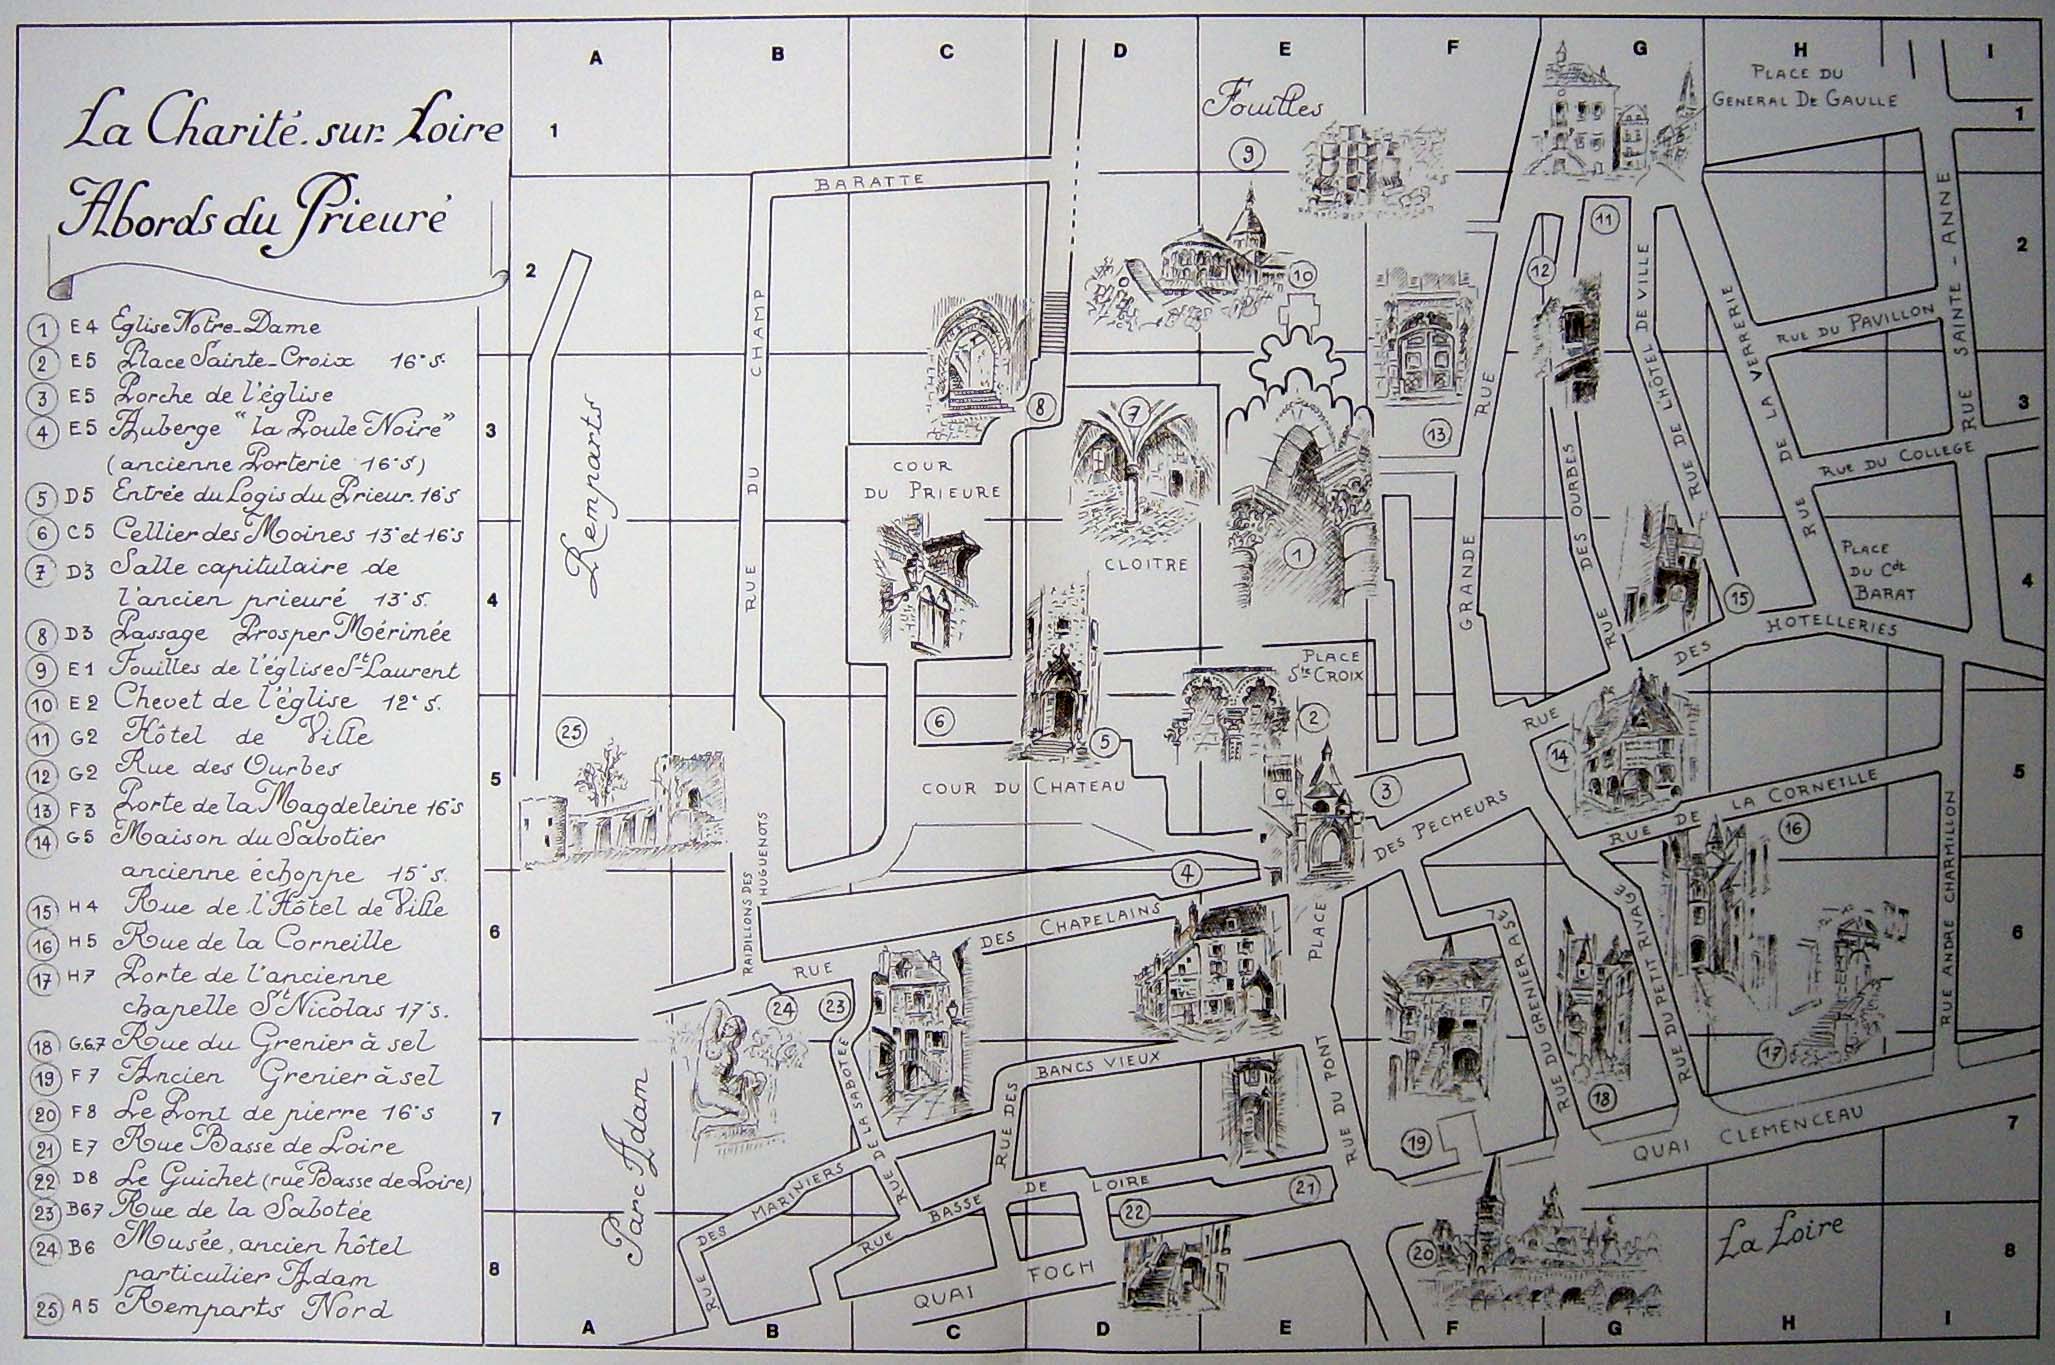 La Charité-sur-Loire
Abords du Prieuré
1 E4 Eglise Notre-Dame
2 E5 Place Sainte-Croix 16e s.
3 E5 Porche de l'église
4 E5 Auberge "la Poule Noire"
(ancienne Porterie 16e s)
5 D5 Entrée du Logis du Prieur. 16e s
6 C5 Cellier des Moines 13e et 16e s
7 D3 Salle capitulaire de
l'ancien prieuré 13e s.
8 D3 Passage Prosper Mérimée
9 E1 Fouilles de l'église St-Laurent
10 E2 Chevet de l'église 12e s.
11 G2 Hôtel de Ville
12 G2 Rue des Ourbes
13 F3 Porte de la Magdeleine 16e s
14 G5 Maison du Sabotier
ancienne échoppe 15e s.
15 H4 Rue de l'Hôtel de Ville
16 H5 Rue de la Corneille
17 H7 Porte de l'ancienne
chapelle St Nicolas 17e s.
18 G.6.7 Rue du Grenier à sel
19 F7 Ancien Grenier à sel
20 F8 Le Pont de pierre 16e s
21 E7 Rue Basse de Loire
22 D8 Le Guichet (rue Basse de Loire)
23 B67 Rue de la Sabotée
24 B6 Musée, ancien hôtel
particulier Adam
25 A5 Remparts Nord
A B C D E F G H I
1
2
3
4
5
6
7
8
Fouilles
9
PLACE DU
GENERAL DE GAULLE
1
BARATTE
10
11
12
2
RUE DU CHAMP
RUE DE L'HÔTEL DE VILLE
RUE DE LA VERRERIE
RUE DU PAVILLON
RUE SAINTE-ANNE
Remparts
8
7
13
3
COUR
DU PRIEURE
RUE DES OURBES
RUE DU COLLEGE
GRANDE RUE
1
CLOITRE
15
PLACE
DU Cdt
BARAT
4
RUE DES HOTELLERIES
PLACE
Ste CROIX
25
6
5
2
14
COUR DU CHATEAU
3
5
RUE DES PECHEURS
RUE DE LA CORNEILLE
16
RAIDILLONS DES
HUGUENOTS
4
RUE DES CHAPELAINS
PLACE
6
RUE ANDRE CHARMILLON
24
23
RUE DU GRENIER A SEL
RUE DU PETIT RIVAGE
17
RUE DE LA SABOTEE
RUE DES BANCS VIEUX
RUE DU PONT
18
19
QUAI CLEMENCEAU
7
Parc Adam
RUE DES MARINIERS
RUE BASSE DE LOIRE
21
22
20
La Loire
8
QUAI FOCH
A B C D E F G H I